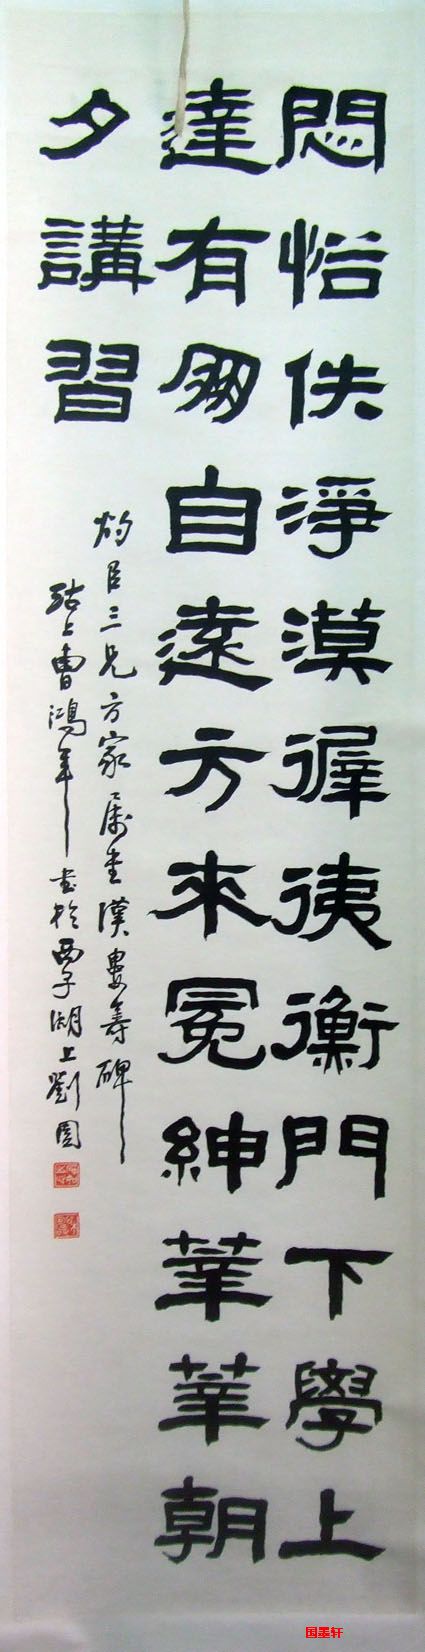 悶恬佚淨漠徲衡門下學上
達有朋自遠方來冕紳莘莘朝
夕講習
灼臣三兄方家屬書漢婁壽碑
沽上曹鴻年書於西子湖上劉園
国墨轩